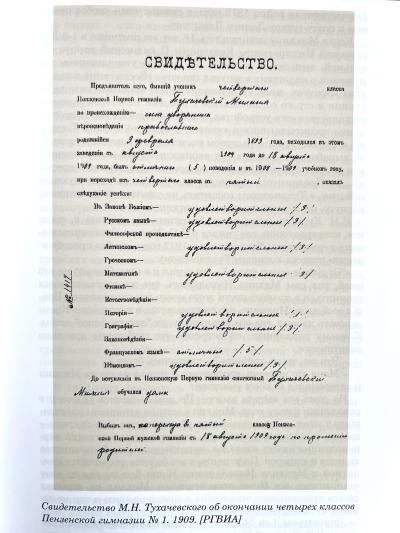 СВИДѢТЕЛЬСТВО.
Предъявитель сего, бывшій ученикъ четвертаго класса
Пензенской Первой гимназіи Тухачевскій Михаилъ
по происхожденію— сынъ дворянина
вѣроисповѣданія православнаго
родившійся 3 февраля 1893 года, находился въ этомъ
заведеніи съ августа 1904 года до 18 августа
1909 года, былъ отличнаго (5) поведенія и въ 1908—1909 учебномъ году,
при переходѣ изъ четвертаго класса въ пятый, оказалъ
слѣдующіе успѣхи:
Въ Законѣ Божіемъ— удовлетворительные /3/
Русскомъ языкѣ— удовлетворительные /3/
Философской пропедевтикѣ—
Латинскомъ— удовлетворительные /3/
Греческомъ—
Математикѣ удовлетворительные 3/
Физикѣ—
Естествовѣдѣніи—
Исторіи— удовлетворительные
Географіи— удовлетворительные /3/
Законовѣдѣніи—
Французскомъ языкѣ— отличные /5/
Нѣмецкомъ— удовлетворительные /3/
До поступленія въ Пензенскую Первую гимназію означенный Тухачевскій
Михаилъ обучался дома
Выбылъ изъ, по переходѣ въ пятый классъ Пензен-
ской Первой мужской гимназіи съ 18 августа 1909 года по прошенію
родителей
№ 1917
Свидетельство М.Н. Тухачевского об окончании четырех классов
Пензенской гимназии № 1. 1909. [РГВИА]